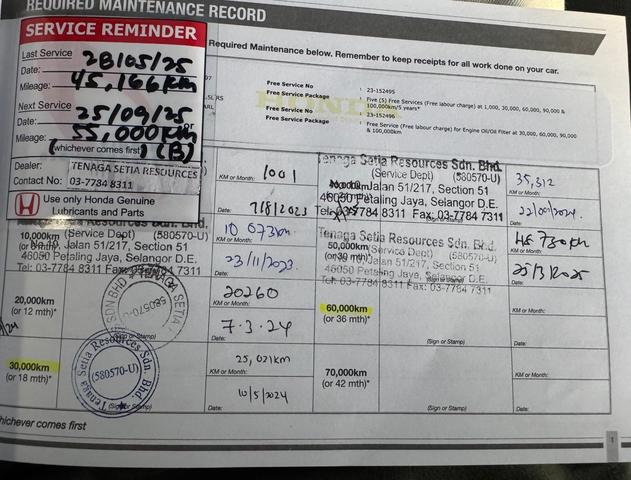 REQUIRED MAINTENANCE RECORD
SERVICE REMINDER
Last Service
Date: 28/05/25
Mileage: 45,166km
Next Service
Date: 25/09/25
Mileage: 55,000km
(whichever comes first) (B)
Dealer: TENAGA SETIA RESOURCES
Contact No: 03-7784 8311
Use only Honda Genuine
Lubricants and Parts
Required Maintenance below. Remember to keep receipts for all work done on your car.
Free Service No : 23-152495
Free Service Package : Five (5) Free Services (Free labour charge) at 1,000, 30,000, 60,000, 90,000 &
100,000km/5 years*
Free Service No : 23-152496
Free Service Package : Free Service (Free labour charge) for Engine Oil/Oil Filter at 30,000, 60,000, 90,000
& 100,000km
KM or Month: 1001
Date: 7/8/2023
Tenaga Setia Resources Sdn. Bhd.
(Service Dept) (580570-U)
40,000km
Jalan 51/217, Section 51
46050 Petaling Jaya, Selangor D.E.
Tel: 03-7784 8311 Fax: 03-7784 7311
35,312
10,000km
(Service Dept) (580570-U)
No.10, Jalan 51/217, Section 51
46050 Petaling Jaya, Selangor D.E.
Tel: 03-7784 8311 Fax: 03-7784 7311
10 073km
KM or Month:
23/11/2023
Date:
Tenaga Setia Resources Sdn. Bhd.
50,000km
(or 30 mth)*
(Service Dept) (580570-U)
Jalan 51/217, Section 51
46050 Petaling Jaya, Selangor D.E.
Tel: 03-7784 8311 Fax: 03-7784 7311
KM or Month:
25/3/2025
Date:
20,000km
(or 12 mth)*
SDN BHD TENAGA SETIA
580570-U
(Sign or Stamp)
20260
KM or Month:
7.3.24
Date:
60,000km
(or 36 mth)*
(Sign or Stamp)
KM or Month:
Date:
30,000km
(or 18 mth)*
Tenaga Setia Resources Sdn. Bhd.
(580570-U)
(Sign or Stamp)
25,021km
KM or Month:
10/5/2024
Date:
70,000km
(or 42 mth)*
(Sign or Stamp)
KM or Month:
Date:
whichever comes first
1